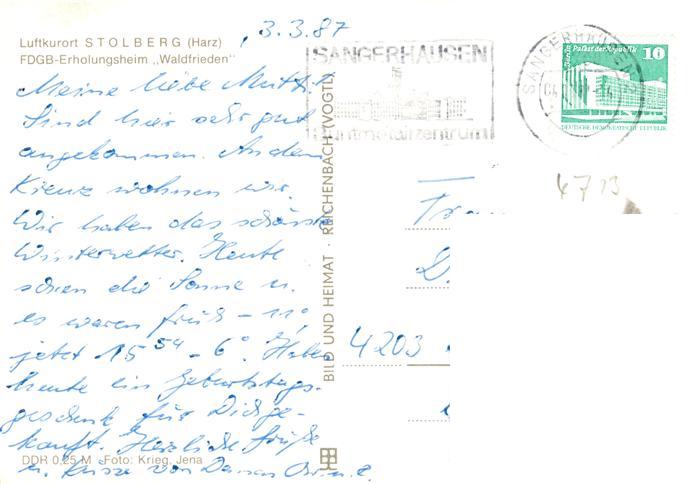 , 3.3.87
Luftkurort STOLBERG (Harz)
FDGB-Erholungsheim „Waldfrieden“
Meine liebe Mutti!
Sind hier sehr gut
angekommen. An dem
Kreuz wohnen wir.
Wir haben das schönste
Winterwetter. Heute
schien die Sonne u.
es waren früh -11°,
jetzt 15⁵⁴ -6°. Haben
heute ein Geburtstags-
geschenk für Dich ge-
kauft. Herzliche Grüße
u. Küsse von
DDR 0,25 M · Foto: Krieg, Jena
BILD UND HEIMAT · REICHENBACH (VOGTL)
SANGERHAUSEN
Buntmetallzentrum
SANGERHAUSEN
Palast der Republik 10
DEUTSCHE DEMOKRATISCHE REPUBLIK
4713
4203